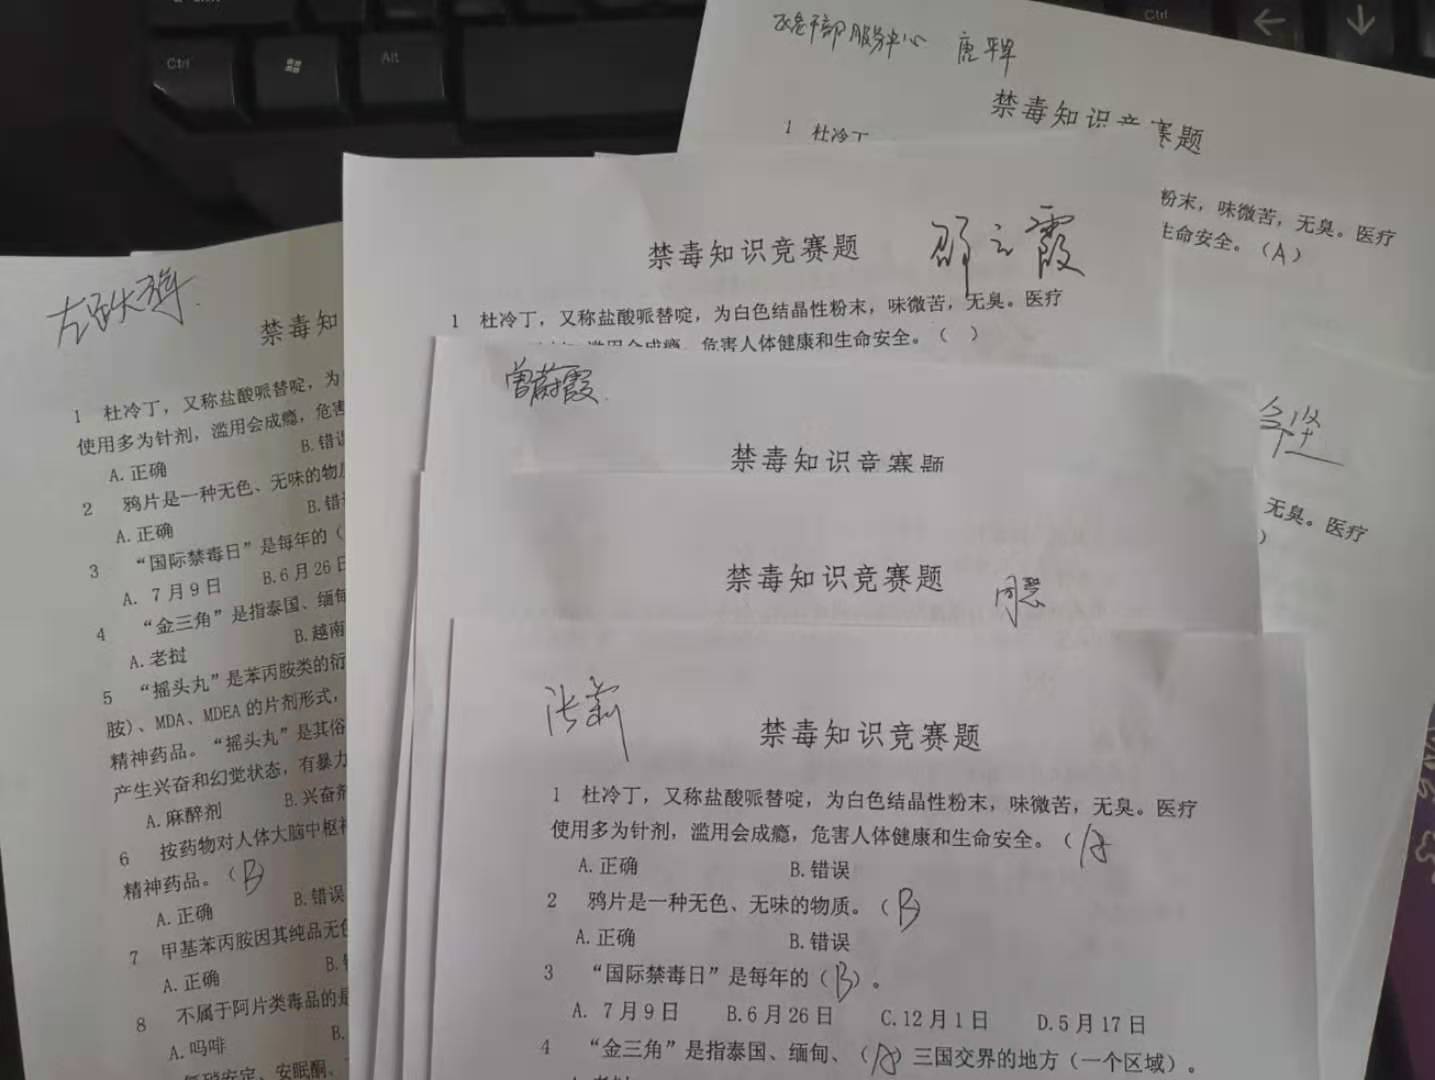 Ctrl
Alt
Ctrl
老干部服务中心
禁毒知识竞赛题
1 杜冷丁
粉末，味微苦，无臭。医疗
生命安全。（A）
无臭。医疗
）
禁毒知识竞赛题
邵之霞
1 杜冷丁，又称盐酸哌替啶，为白色结晶性粉末，味微苦，无臭。医疗
滥用会成瘾，危害人体健康和生命安全。（ ）
曾蔚霞
禁毒知识竞赛题
禁毒知识竞赛题
禁毒知
1 杜冷丁，又称盐酸哌替啶，为
使用多为针剂，滥用会成瘾，危害
A.正确 B.错误
2 鸦片是一种无色、无味的物质
A.正确 B.错
3 “国际禁毒日”是每年的（
A. 7月9日 B.6月26日
4 “金三角”是指泰国、缅甸
A.老挝 B.越南
5 “摇头丸”是苯丙胺类的衍
胺）、MDA、MDEA的片剂形式，
精神药品。“摇头丸”是其俗
产生兴奋和幻觉状态，有暴力
A.麻醉剂 B.兴奋剂
6 按药物对人体大脑中枢神
精神药品。（B）
A.正确 B.错误
7 甲基苯丙胺因其纯品无色
A.正确 B.
8 不属于阿片类毒品的是
A.吗啡 B.
安眠酮、
张莉
禁毒知识竞赛题
1 杜冷丁，又称盐酸哌替啶，为白色结晶性粉末，味微苦，无臭。医疗
使用多为针剂，滥用会成瘾，危害人体健康和生命安全。（A
A.正确 B.错误
2 鸦片是一种无色、无味的物质。（B）
A.正确 B.错误
3 “国际禁毒日”是每年的（B）。
A. 7月9日 B.6月26日 C.12月1日 D.5月17日
4 “金三角”是指泰国、缅甸、（A）三国交界的地方（一个区域）。